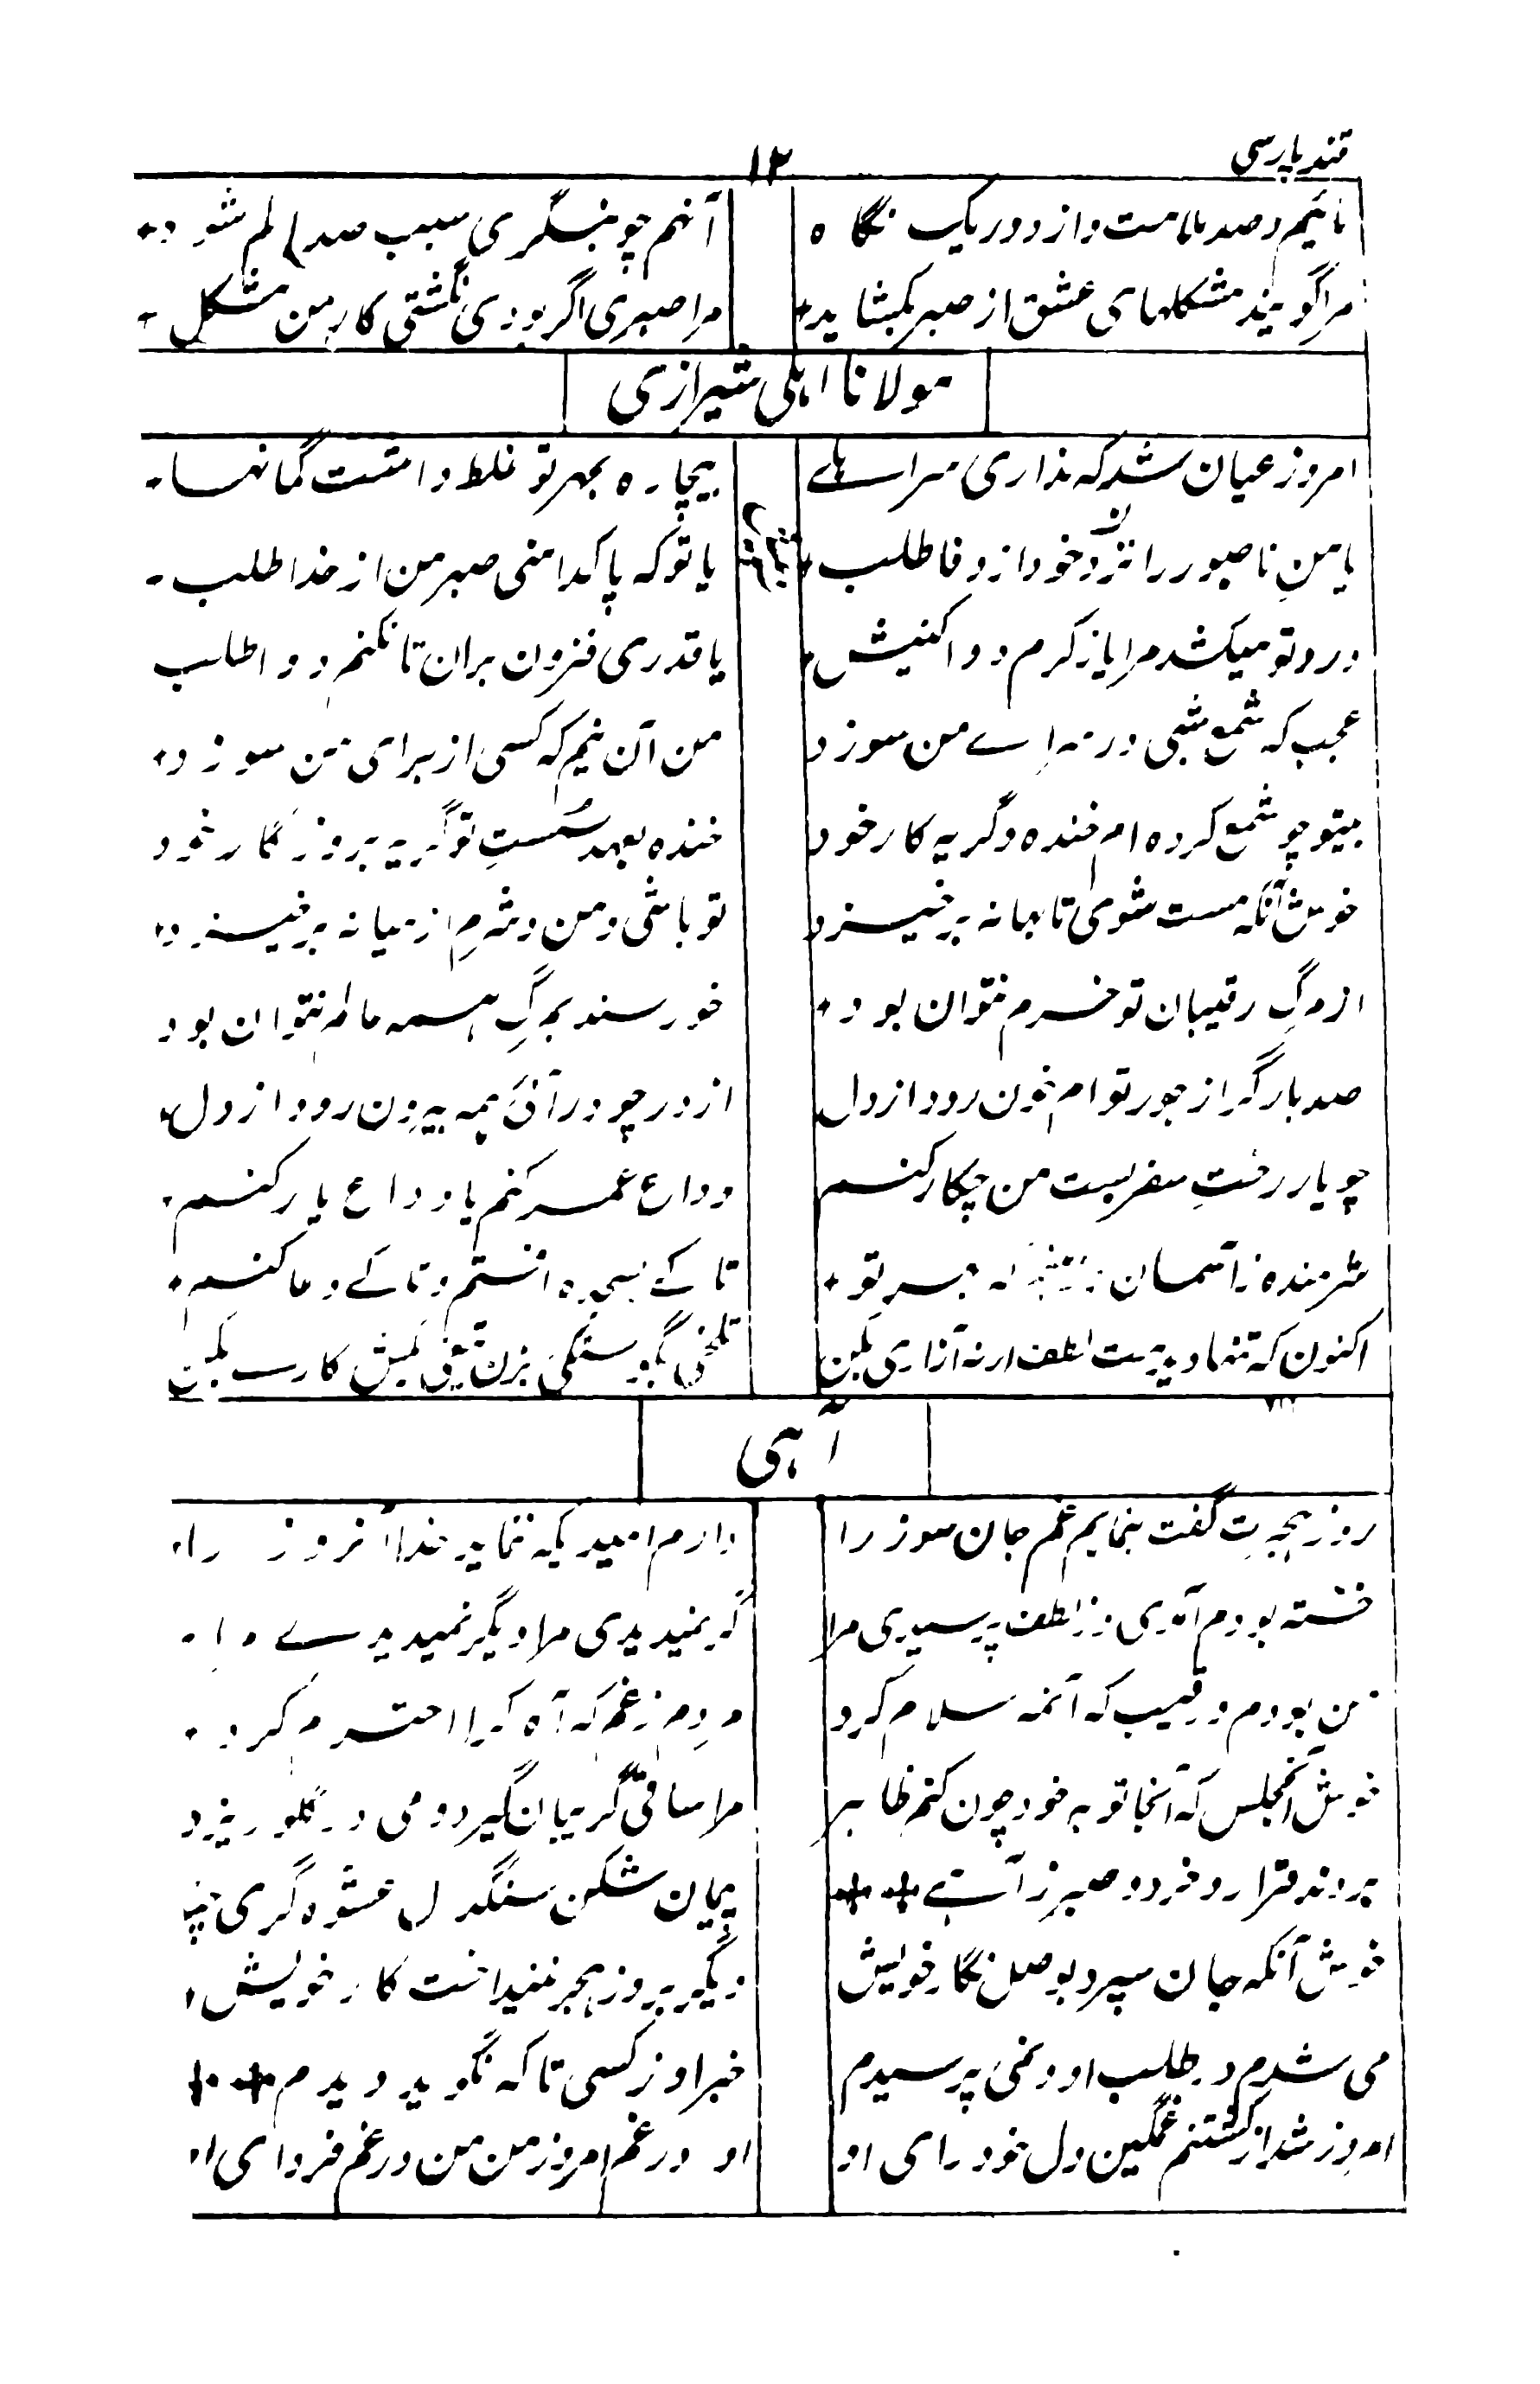 قند پارسی
۱۲
مائیم و صد ملامت و از دور یک نگاه
آنهم چو بنگری سبب صد الم شود
مرا گویند مشکلهای عشق از صبر بکشاید
مرا صبری اگر بودی نگشتی کار من مشکل
مولانا اہلی شیرازی
امروز عیان شد کہ نداری سر اہلے
بیچارہ بمہر تو غلط داشت گمانہا
یا من ناصبور را نزد خود از وفا طلب
یا تو کہ پاکدامنی صبر من از خدا طلب
درد تو میکشد مرا یا ز کرم دوا کنیش
یا قدری فزون بران تا نکنم دوا طلب
عجب کہ شمع شبی در سراے من سوزد
من آن نیم کہ کسی از برای من سوزد
بیتو چو شمع کردہ ام خندہ و گریہ کار خود
خندہ بعہد سست تو گریہ بروزگار خود
خوش آنکہ مست شوی تا بہانہ برخیزد
تو باشی و من و شرم از میانہ برخیزد
از مرگ رقیبان تو خرم نتوان بود
خورسند بمرگ ہمہ عالم نتوان بود
صد بار گر از جور توام خون رود از دل
از در چو درآئی ہمہ بیرون رود از دل
چو یار رخت سفر بست من چکار کنم
وداع عمر کنم یا وداع یار کنم
شرمندہ ز آسمان بہر تو
تا کے بسجدہ افتم و تا کے دعا کنم
اکنون کہ تنہا دیدمت لطف ارنہ آزاری بکن
تلخی بگو سنگی بزن تیغی بکش کارے بکن
آہی
روز ہجرت گفت بنمایم غم جان سوز را
دارم امید یکہ ننماید خدا آنروز را
خستہ بودم آمدی وز لطف پرسیدی مرا
گر نمیدیدی مرا دیگر نمیدیدے مرا
من بودم و رقیب کہ آنمہ سلام کرد
مردم ز غم کہ آہ کرا احترام کرد
خوش آنمجلس کہ آنجا تو بہ خود چون کنم ظاہر
مرا ساقی گریبان گیرد و می در گلو ریزد
بردند قرار و خرد و صبر ز آہے
پیمان شکن سنگدل عشوہ گری چند
خوش آنکہ جان سپرد بوصل نگار خویش
دیگر بروز ہجر نینداخت کار خویش
می شدم در طلب او و نمی پرسیدم
خبر او ز کسی تا کہ نگوید دیدم
امروز شد از کشتنم غمگین دل خود رای او
او در غم امروز من من در غم فردای او